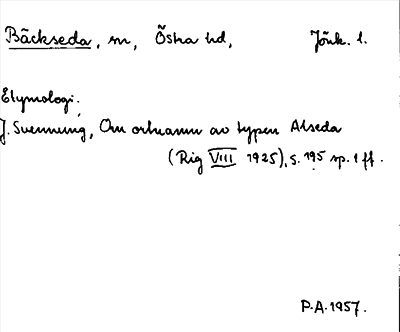 Bäckseda, sn, Östra hd, Jönk. l.
Etymologi.
J. Svennung, Om ortnamn av typen Alseda
(Rig VIII 1925), s. 195 sp. 1 ff.
P.A. 1957.